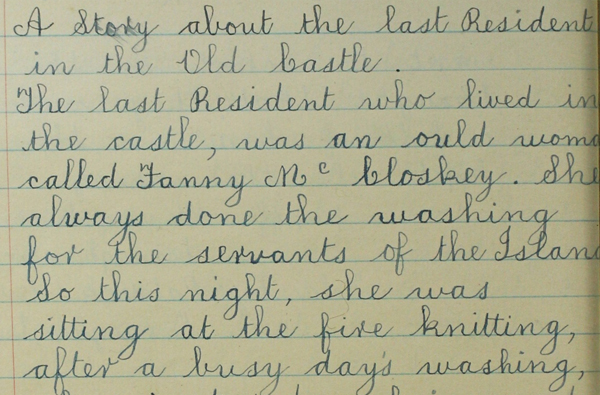 A Story about the last Resident
in the Old Castle.
The last Resident who lived in
the castle, was an ould woma
called Fanny Mc Closkey. She
always done the washing
for the servants of the Island
So this night, she was
sitting at the fire knitting,
after a busy day's washing,